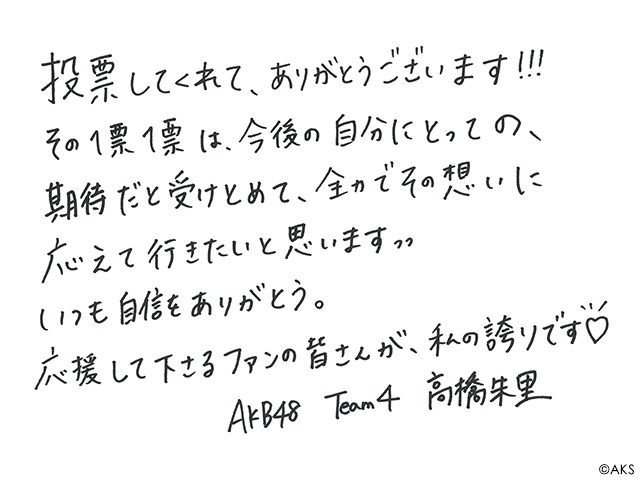 投票してくれて、ありがとうございます!!!
その1票1票は、今後の自分にとっての、
期待だと受けとめて、全力でその想いに
応えて行きたいと思いますっっ
いつも自信をありがとう。
応援して下さるファンの皆さんが、私の誇りです♡
AKB48 Team4 高橋朱里
©AKS